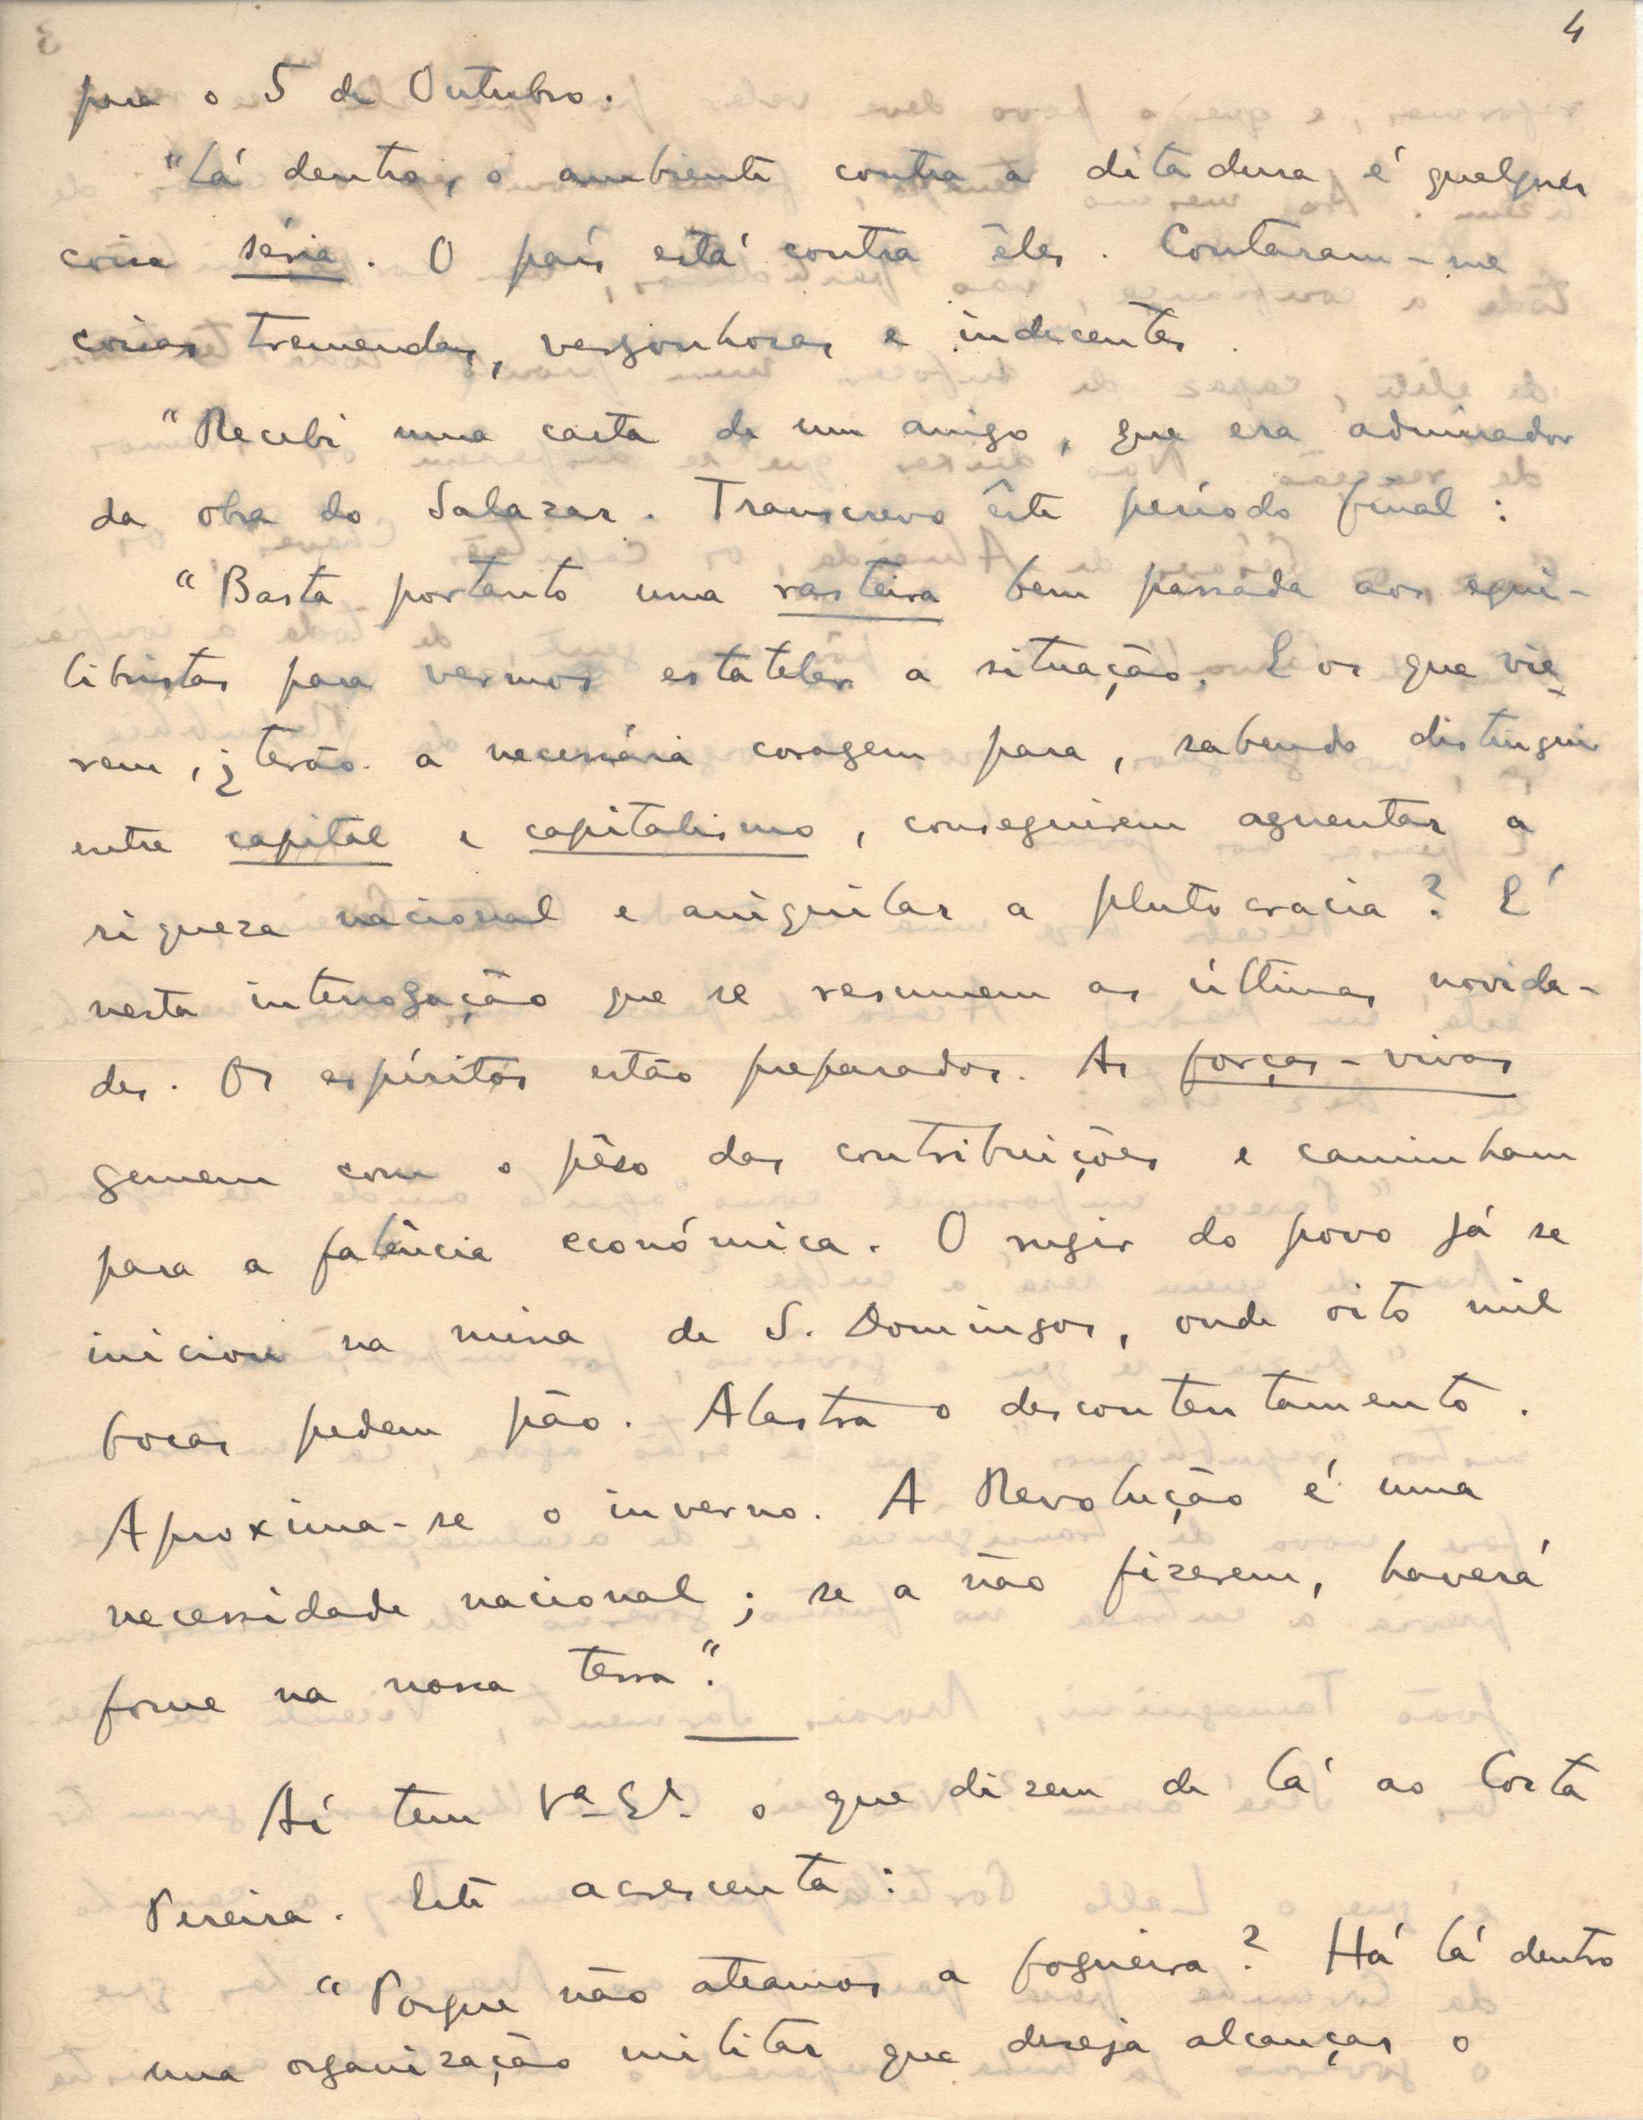 4
para o 5 de Outubro.
"Lá dentro, o ambiente contra a ditadura é qualquer
coisa séria. O país está contra êles. Contaram-me
coisas tremendas, vergonhosas e indecentes.
"Recebi uma carta de um amigo, que era admirador
da obra do Salazar. Transcrevo êste período final:
"Basta portanto uma rasteira bem passada aos equi-
libristas para vermos estatelar a situação. E os que vie-
rem, ¿terão a necessária coragem para, sabendo distinguir
entre capital e capitalismo, conseguirem aguentar a
riqueza nacional e aniquilar a plutocracia? É
nesta interrogação que se resumem as últimas novida-
des. Os espíritos estão preparados. As forças-vivas
gemem com o pêso das contribuições e caminham
para a falência económica. O rugir do povo já se
iniciou na mina de S. Domingos, onde oito mil
bocas pedem pão. Alastra o descontentamento.
Aproxima-se o inverno. A Revolução é uma
necessidade nacional; se a não fizerem, haverá
fome na nossa terra".
Aí tem Vª Exª o que dizem de lá ao Cortà
Pereira. Este acrescenta:
"Porque não ateamos a fogueira? Há lá dentro
uma organização militar que deseja alcançar o